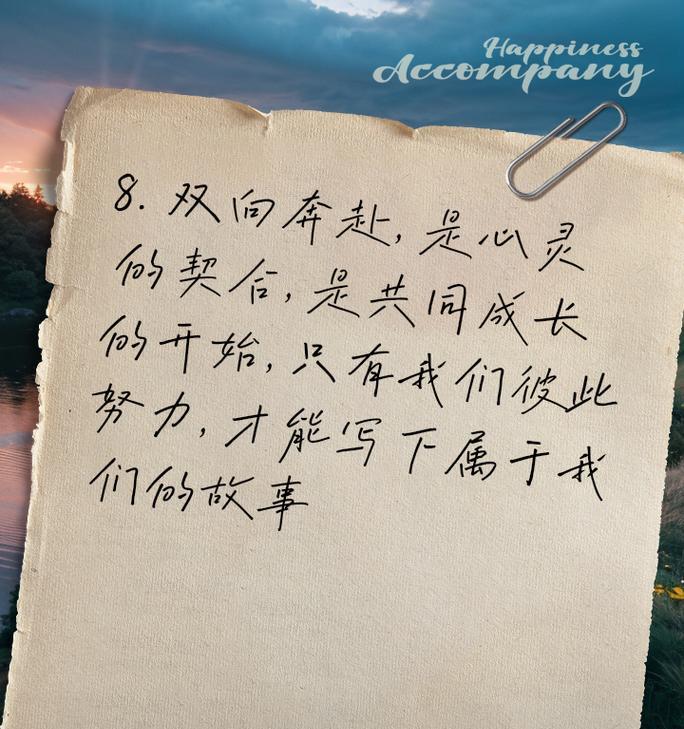 Happiness
Accompany
8. 双向奔赴, 是心灵
的契合, 是共同成长
的开始, 只有我们彼此
努力, 才能写下属于我
们的故事